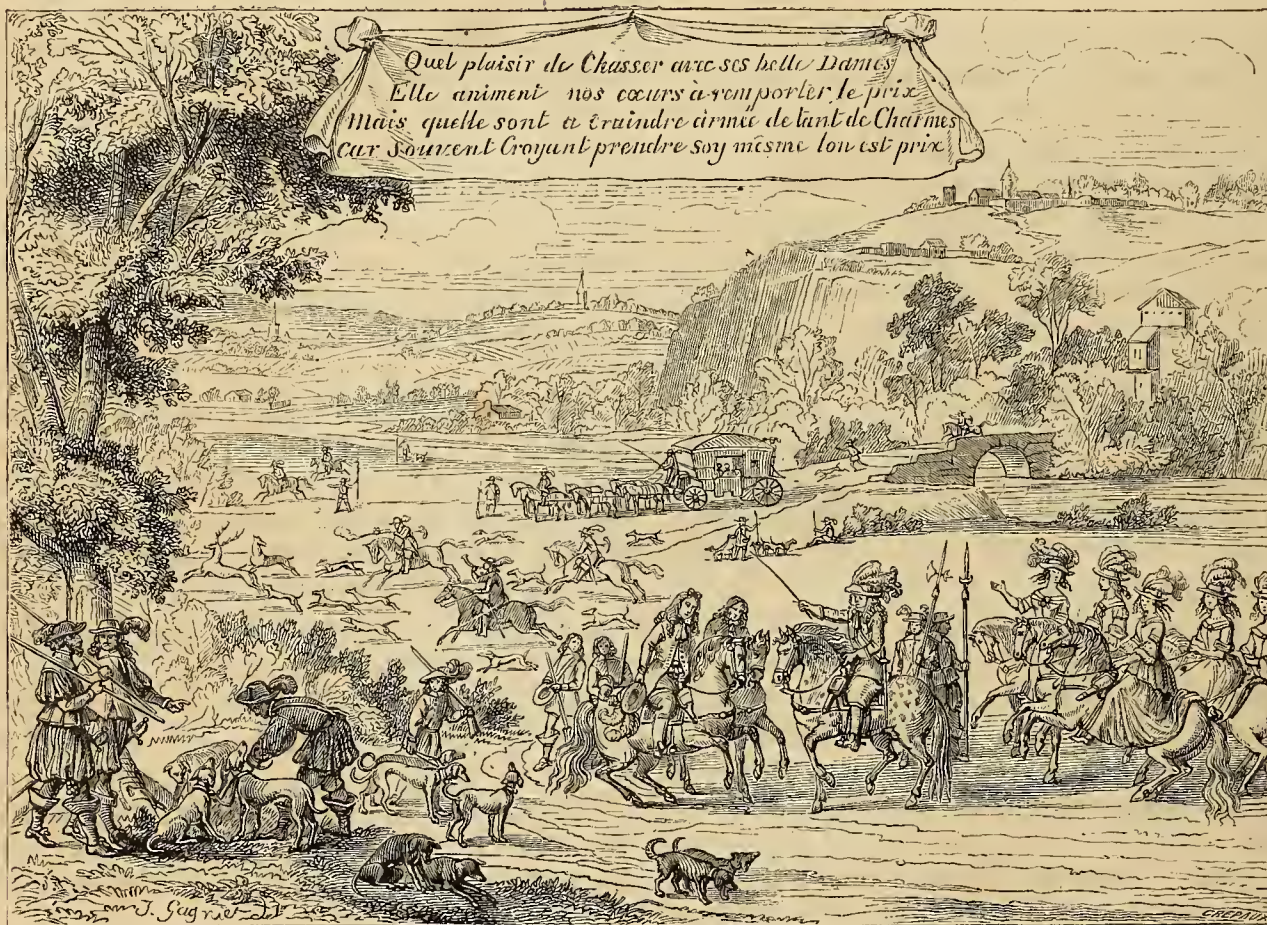 Quel plaisir de Chasser avec ses belle Dames
Elle animent nos cœurs à remporter le prix
Mais quelle sont a Craindre armée de tant de Charmes
Car souvent Croyant prendre soy mesme lon est prix
J. Gagniet
CREPAUX